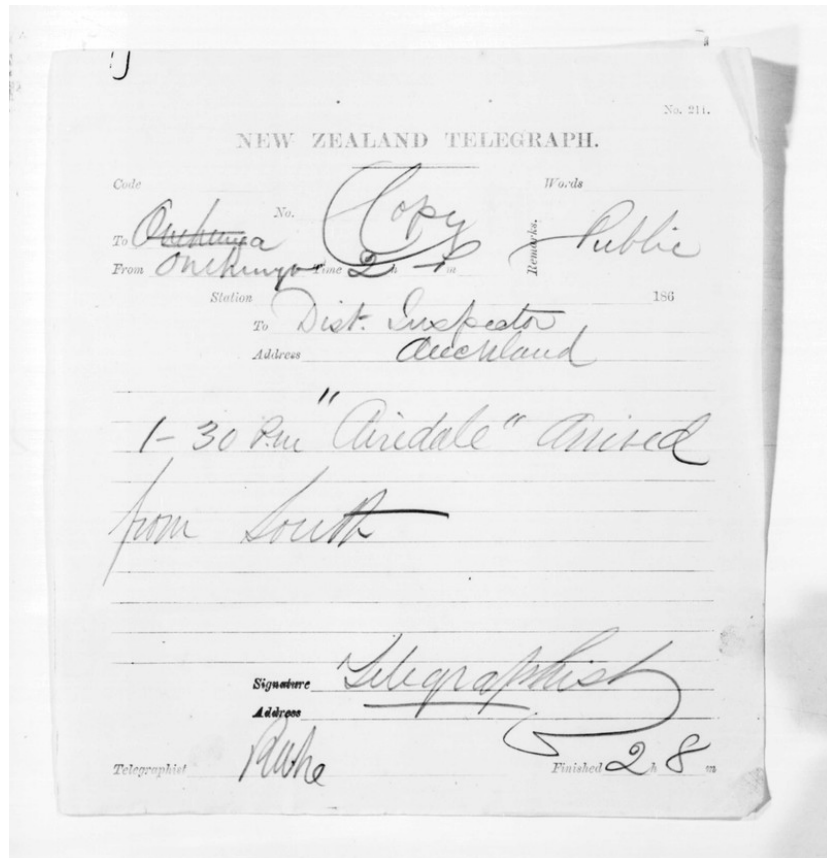 No. 211.
NEW ZEALAND TELEGRAPH.
Code Words
No. Copy
To Onehunga Remarks. Public
From Onehunga Time 2 h 1 m
Station 186
To Dist. Inspector
Address Auckland
1-30 P.m "Airedale" arrived
from South
Signature Telegraphist
Address
Telegraphist
Finished 2 h 8 m